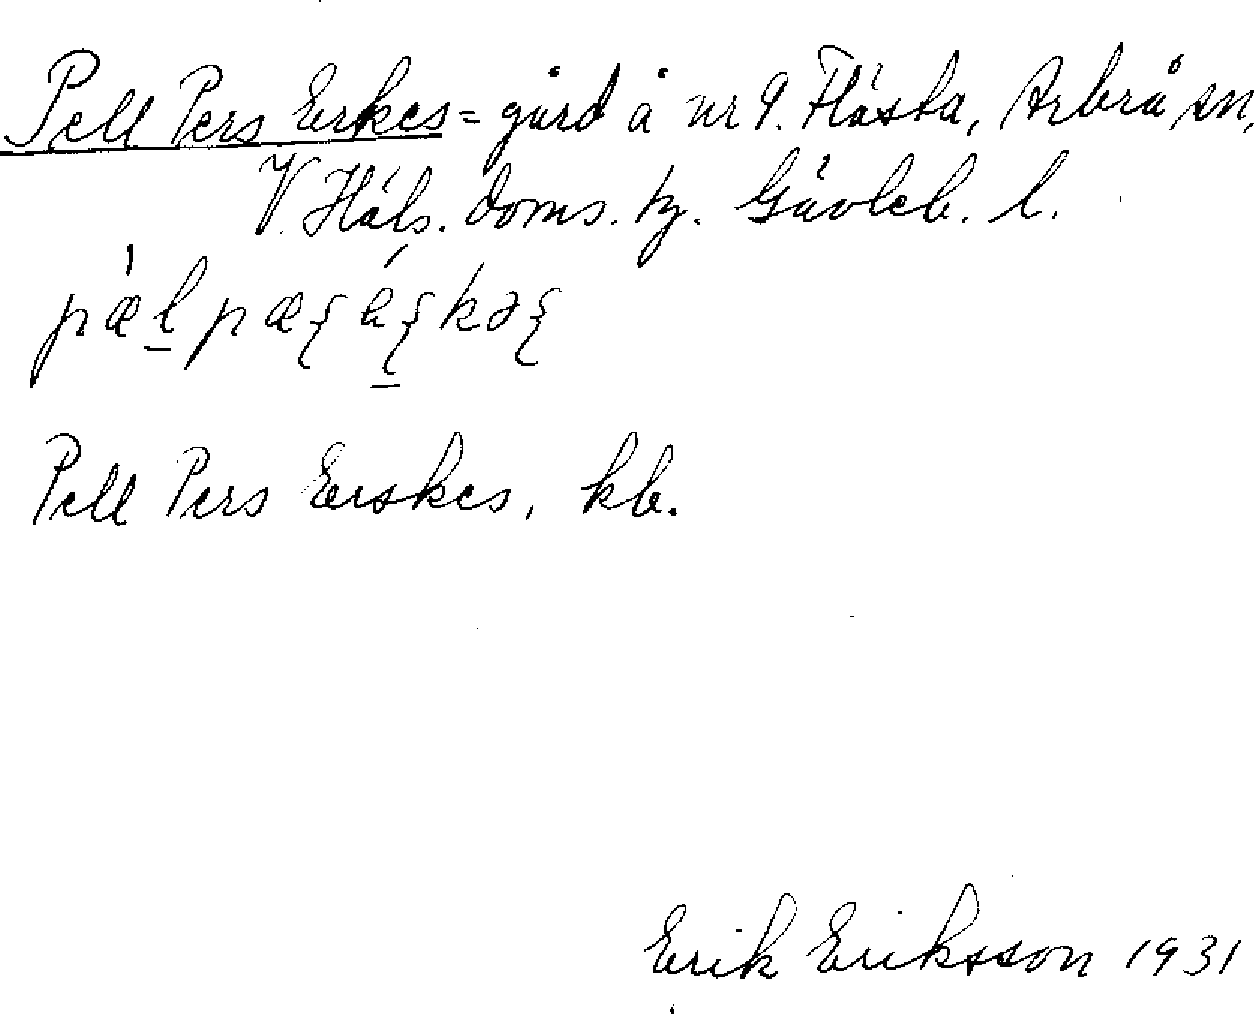 Pell Pers Erkes = gård å nr 9. Flästa, Arbrå sn,
V. Häls. doms. tg. Gävleb. l.
Pell Pers Erskes, kb.
Erik Eriksson 1931